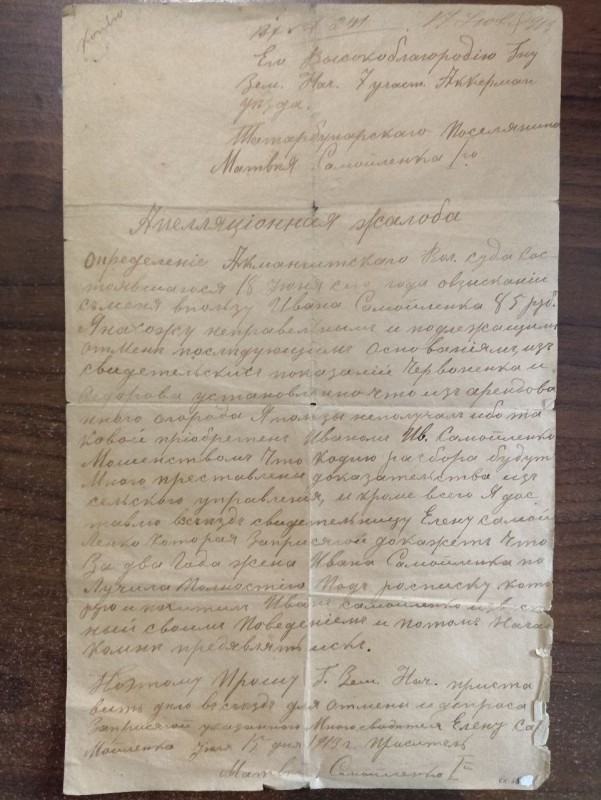 Его Высокоблагородію Гну
Зем. Нач. 7 участ. Аккерман
уезда.
Татарбунарскаго Поселянина
Матвея Самойленка Iго
Апелляціонная жалоба
Определеніе Акмангитскаго Вол. суда сос
тоявшагося 18 Июня сего года овзысканіи
съменя впользу Ивана Самойленка 85 руб.
Янахожу неправельным и подлежащим
отмене последующим основаніям, изъ
свидетельских показаній Червоненка и
установленно что изъ арендова
ннаго огорода Я ползы неполучал ибо та
ковой пріобретен Иваном Ив. Самойленко
Мошенством Что кодню разбора будут
Мною преставлены доказательства изъ
сельского управления, и кроме всего Я дос
тавлю всъездъ свидетельницу Елену Самой
ленко Которая Заприсягой докажетъ Что
За два Года жена Ивана Самойленка по
лучила Полностію Подъ росписку кото
рую Иван Самойленко
ный своим Поведеніем и потом
комне предявлять искъ.
Поэтому Прошу Г. Зем. Нач. приста
вить дело всъездъ для отмены и допроса
Заприсягой указанного Мною Елену Са
мойленко 15 дня 1913 г. Проситель
Матвей Самойленко Iй